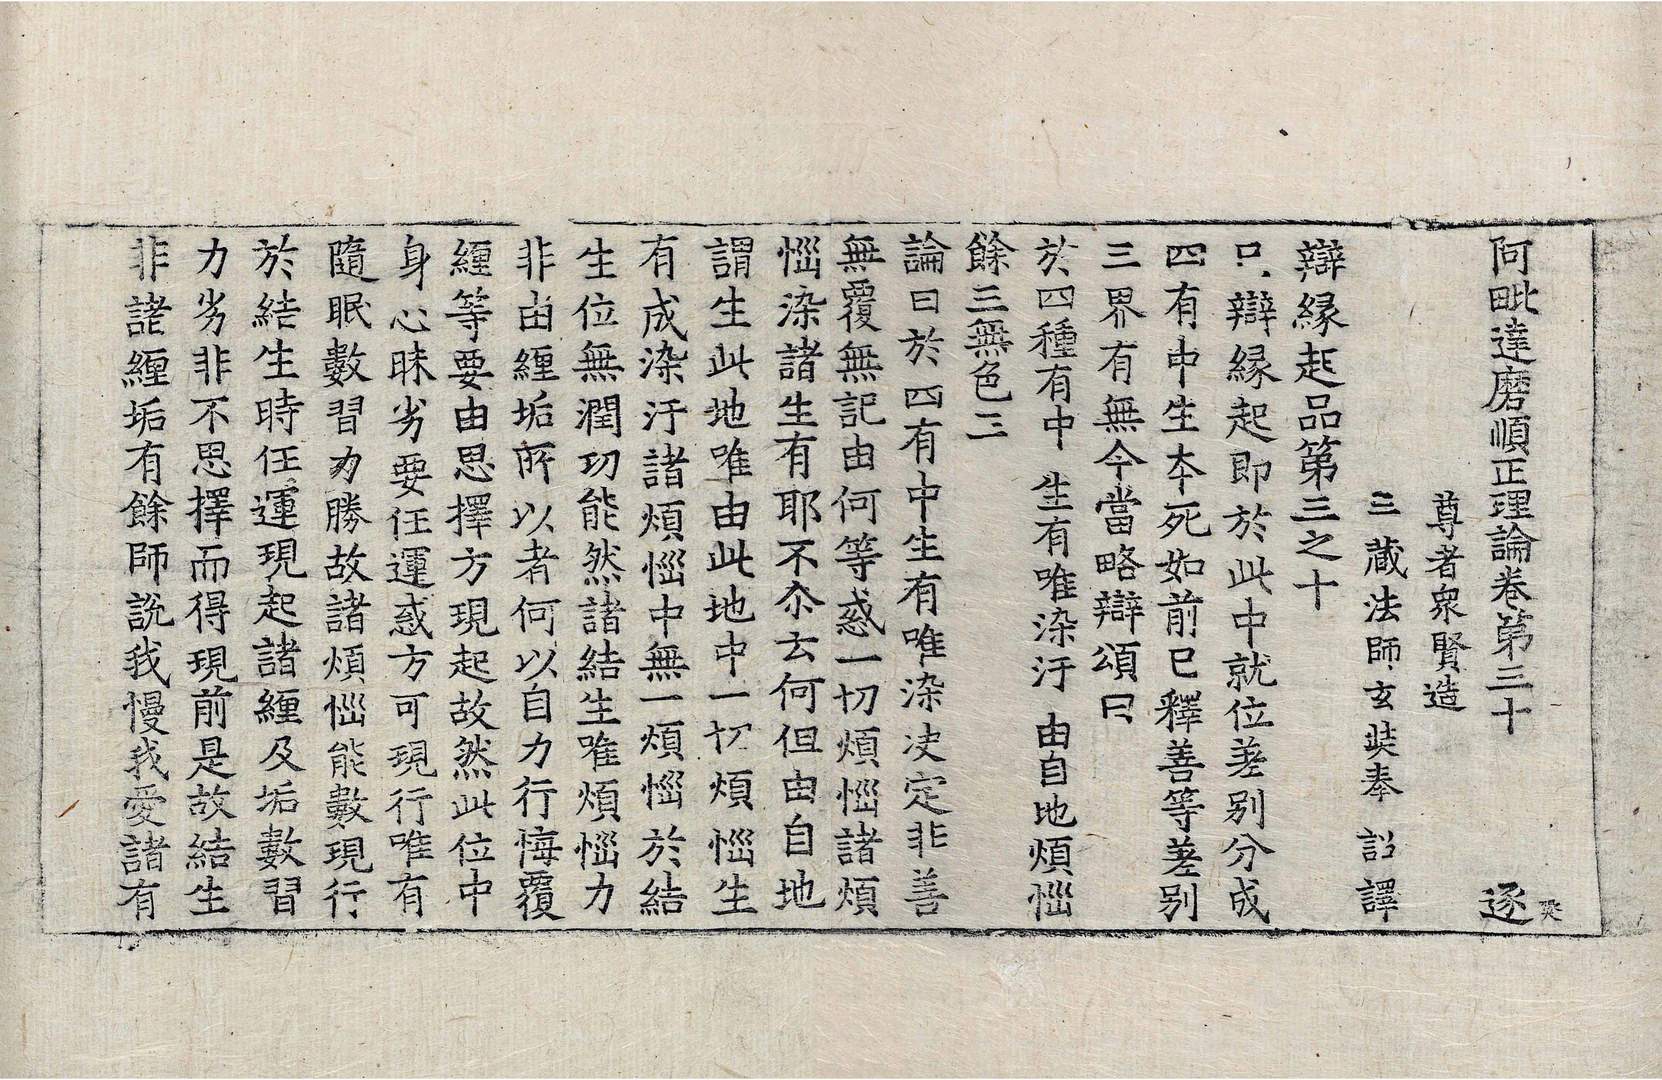 阿毗達磨順正理論卷第三十 逐
尊者衆賢造
三藏法師玄奘奉 詔譯
辯緣起品第三之十
只辯緣起即於此中就位差别分成
四有中生本死如前已釋善等差别
三界有無今當略辯頌曰
於四種有中 生有唯染汙 由自地煩惱
餘三無色三
論曰於四有中生有唯染决定非善
無覆無記由何等惑一切煩惱諸煩
惱染諸生有耶不尒云何但由自地
謂生此地唯由此地中一切煩惱生
有成染汙諸煩惱中無一煩惱於結
生位無潤功能然諸結生唯煩惱力
非由纏垢所以者何以自力行悔覆
纏等要由思擇方現起故然此位中
身心昧劣要任運惑方可現行唯有
隨眠數習力勝故諸煩惱能數現行
於結生時任運現起諸纏及垢數習
力劣非不思擇而得現前是故結生
非諸纏垢有餘師說我慢我愛諸有